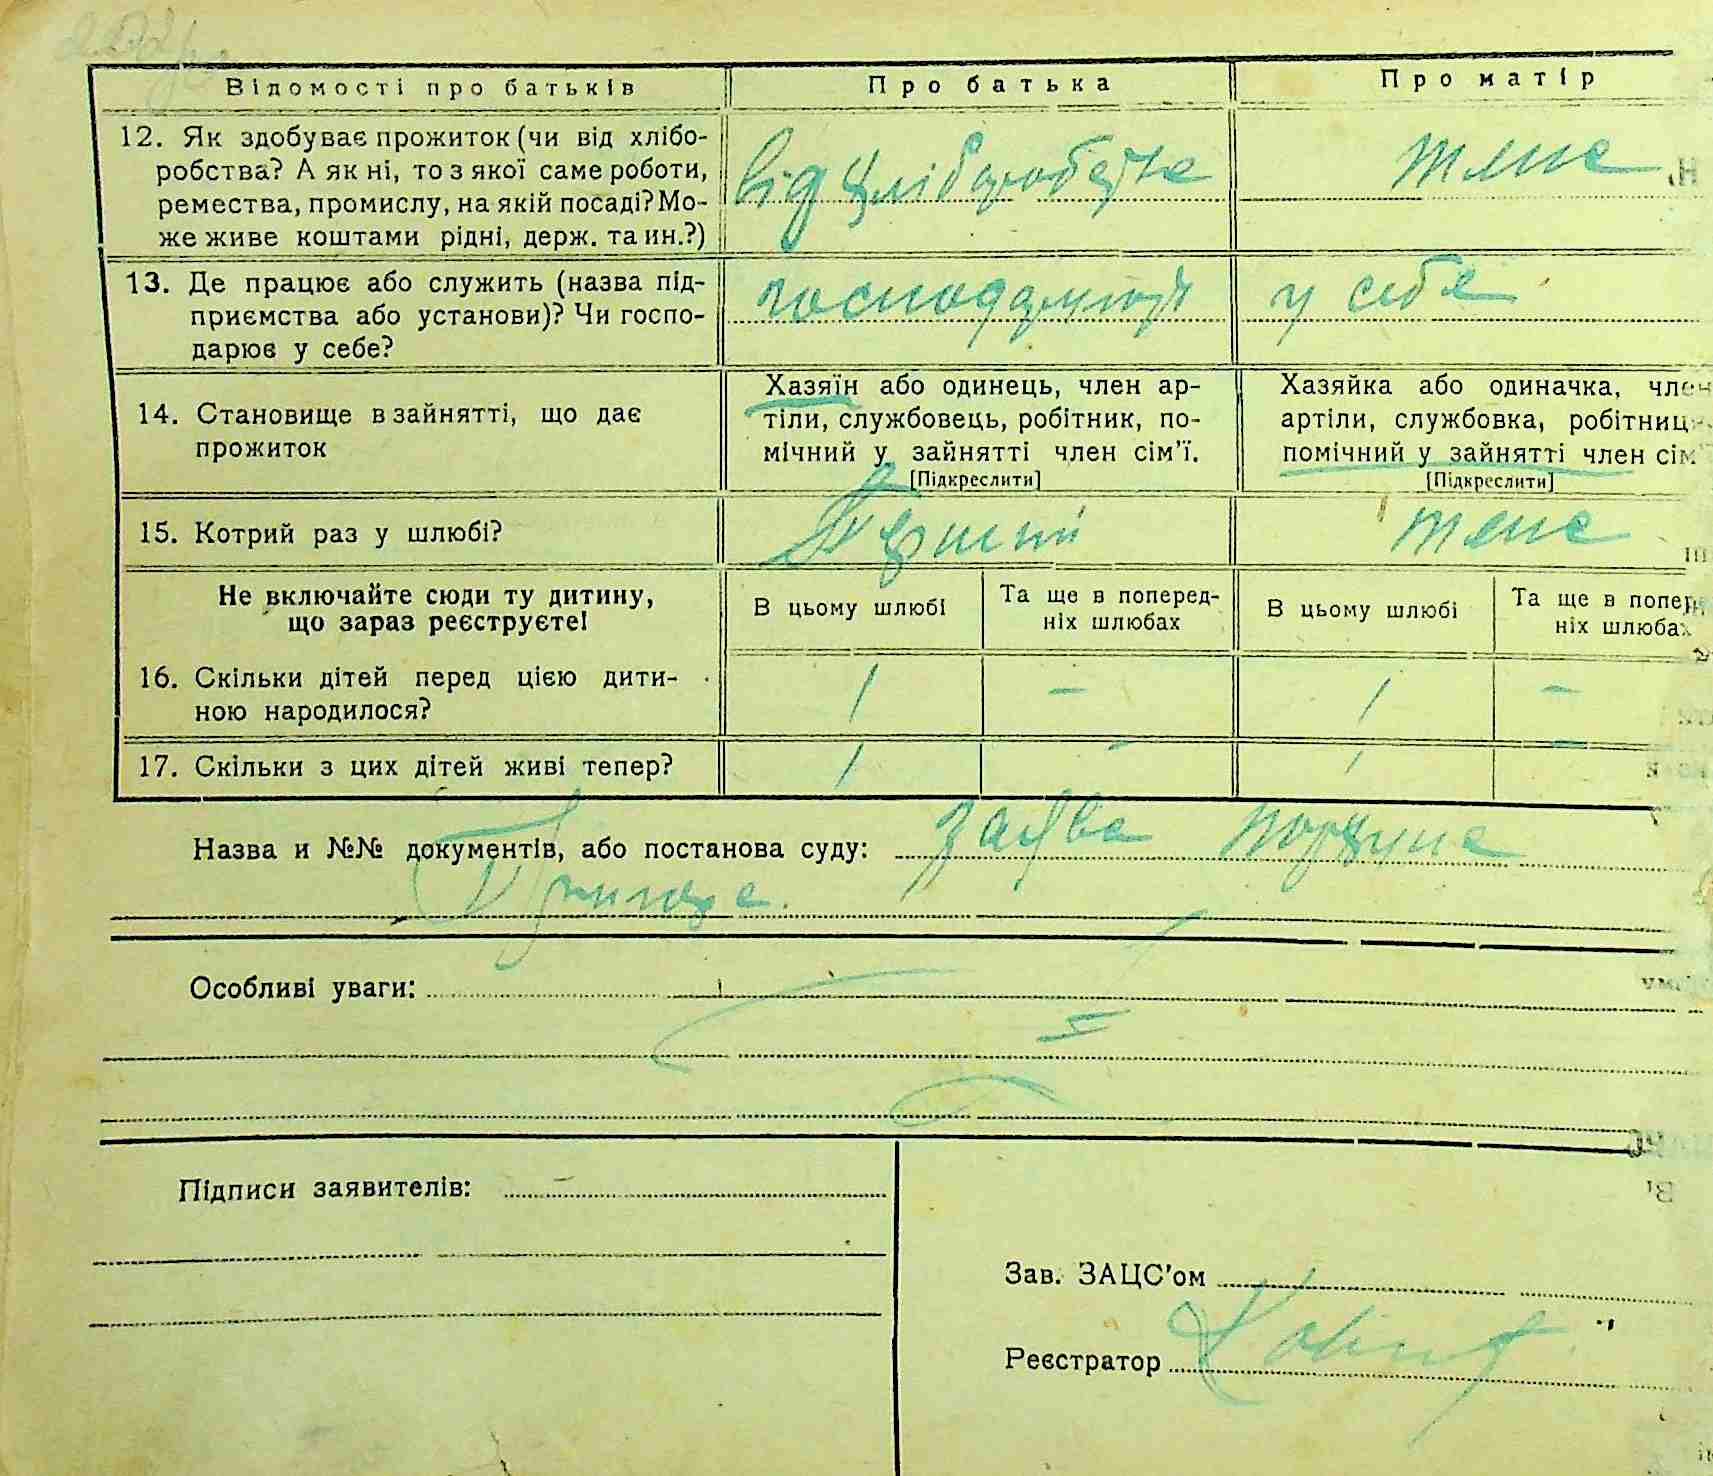 Відомості про батьків Про батька Про матір
12. Як здобуває прожиток (чи від хлібо-
робства? А як ні, то з якої саме роботи,
ремества, промислу, на якій посаді? Мо-
же живе коштами рідні, держ. та ин.?)
від хліборобства теж
13. Де працює або служить (назва під-
приємства або установи)? Чи госпо-
дарює у себе?
господарює у себе
14. Становище в зайнятті, що дає
прожиток
Хазяїн або одинець, член ар-
тіли, службовець, робітник, по-
мічний у зайнятті член сім'ї.
[Підкреслити]
Хазяйка або одиначка, член
артіли, службовка, робітниц
помічний у зайнятті член сім'
[Підкреслити]
15. Котрий раз у шлюбі? Перший теж
Не включайте сюди ту дитину,
що зараз реєструєте!
В цьому шлюбі
Та ще в поперед-
ніх шлюбах
В цьому шлюбі
Та ще в попере
ніх шлюбах
16. Скільки дітей перед цією дити-
ною народилося?
1 – 1 –
17. Скільки з цих дітей живі тепер? 1 – 1 –
Назва и №№ документів, або постанова суду: заява
Особливі уваги:
Підписи заявителів:
Зав. ЗАЦС'ом
Реєстратор